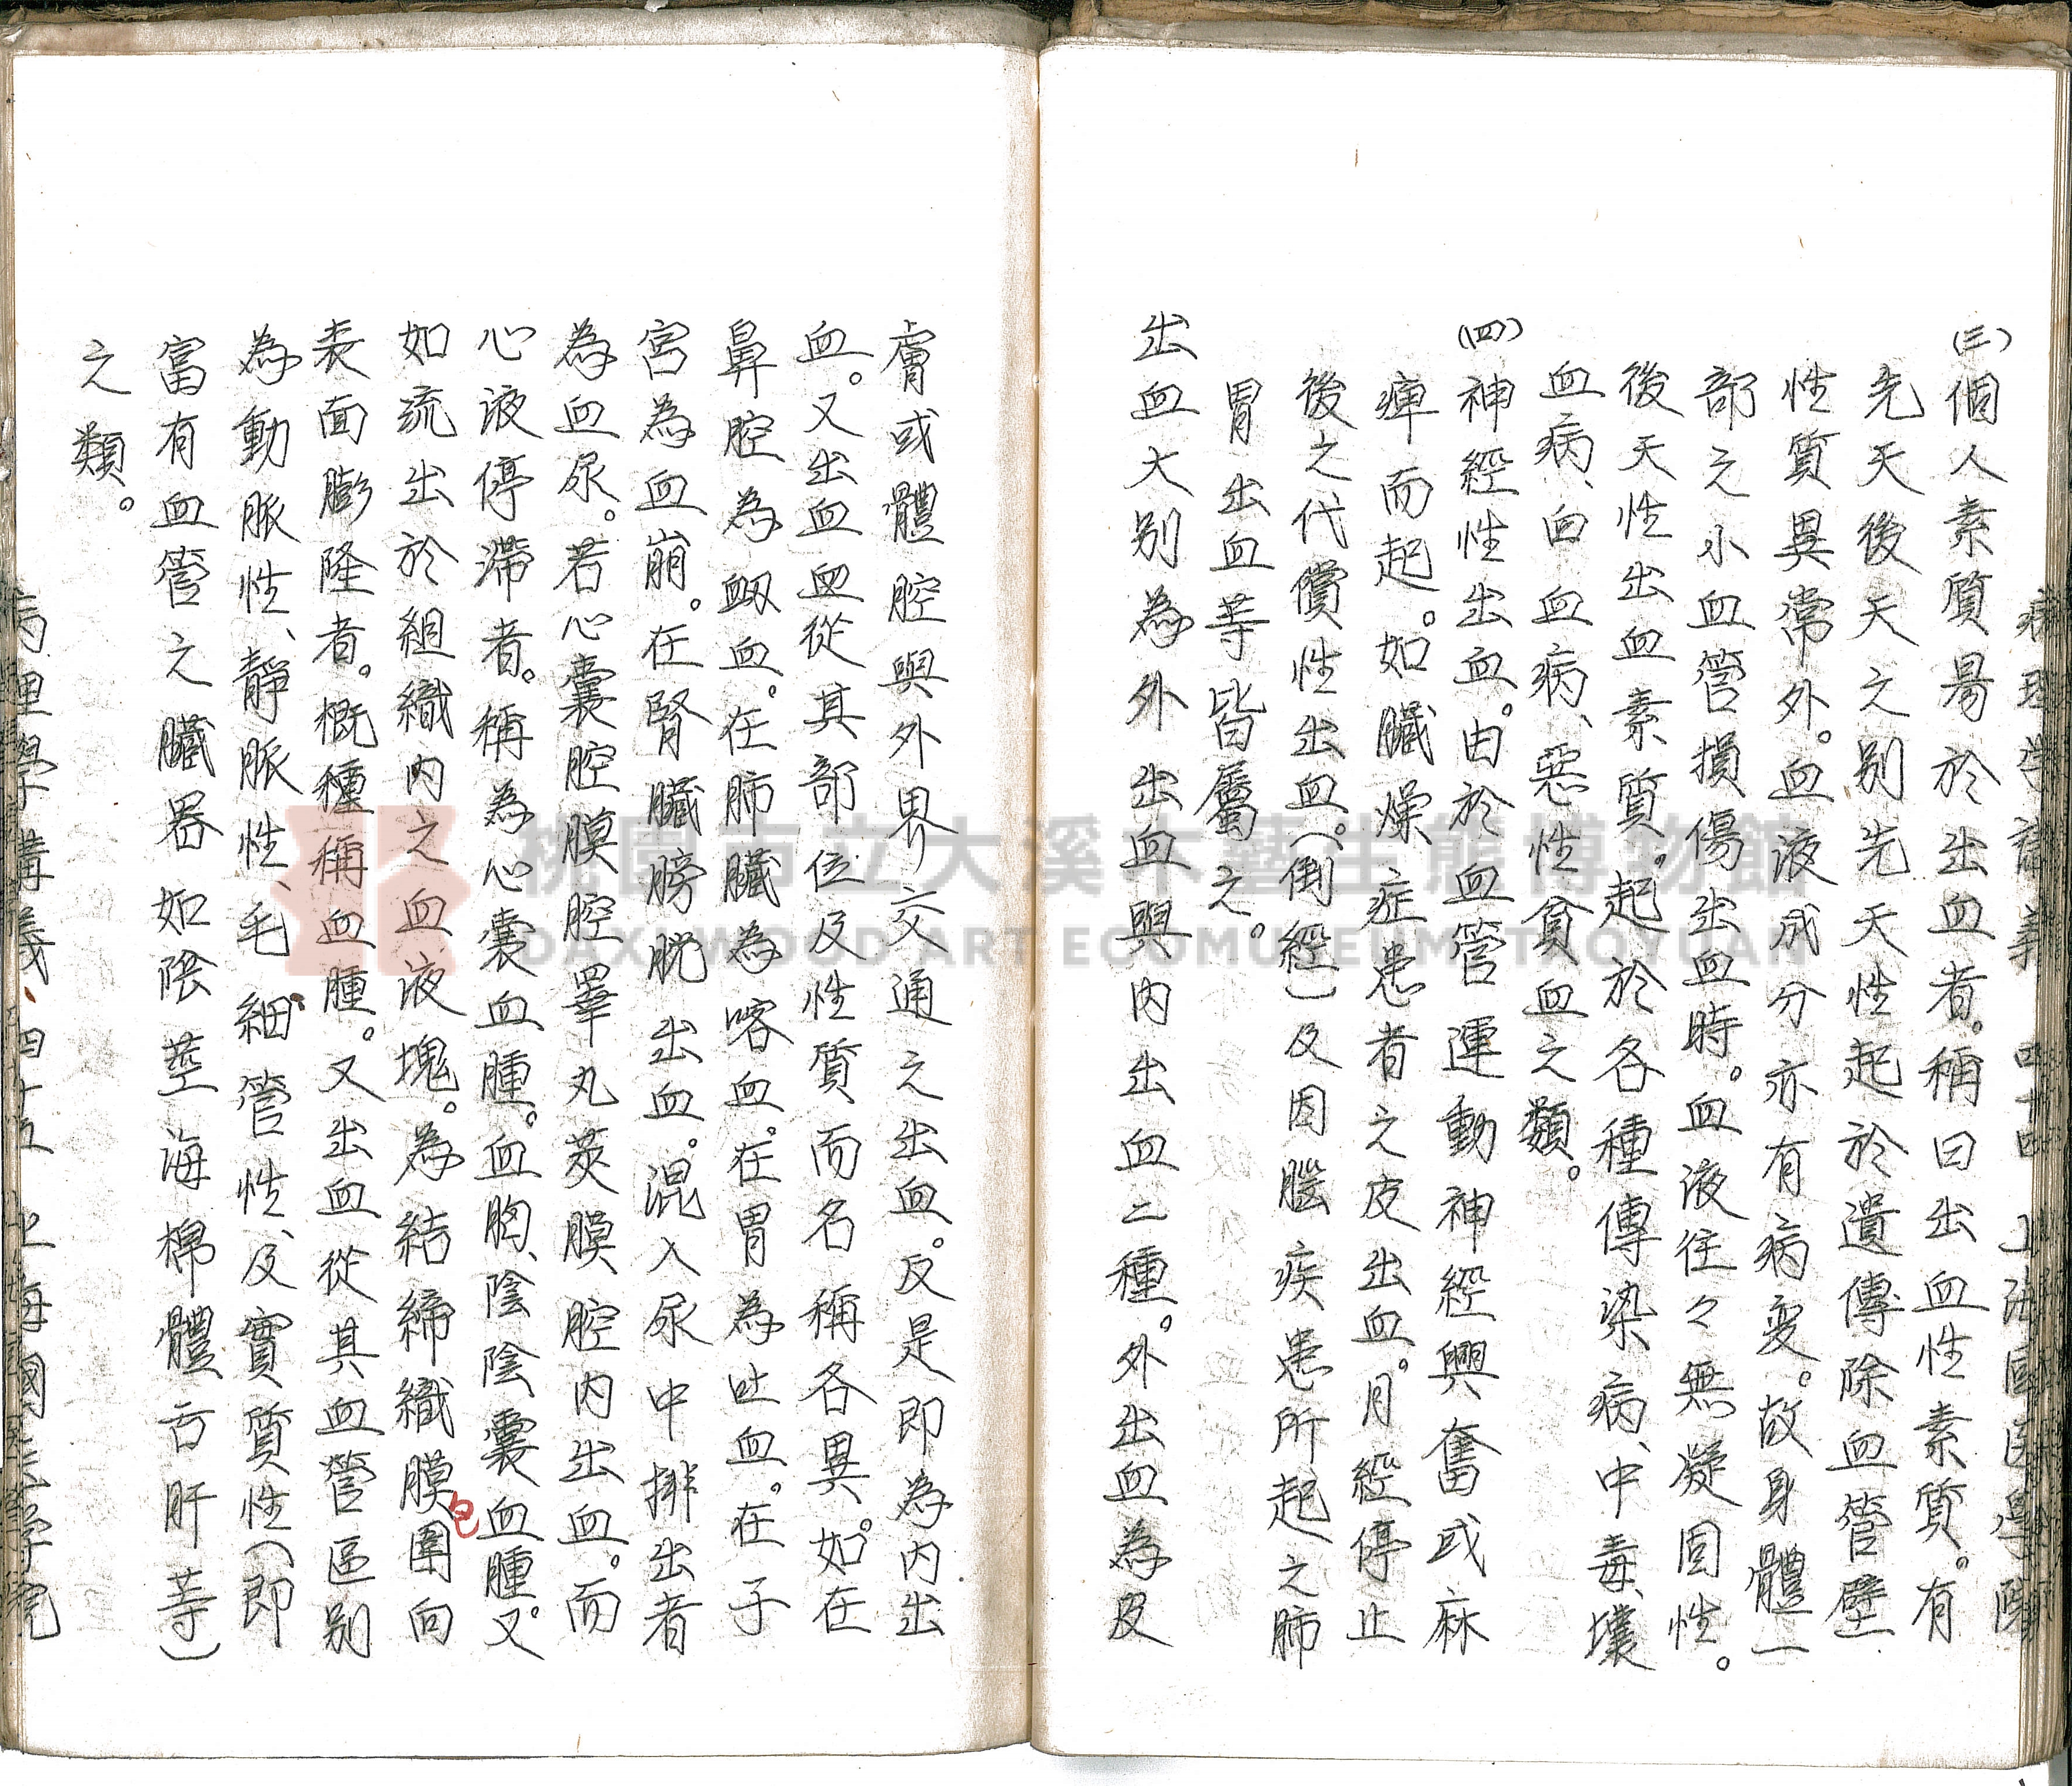 病理学講義 四十四 上海國医學院
(三)個人素質易於出血者。稱曰出血性素質。有
先天後天之別先天性起於遺傳除血管壁
性質異常外。血液成分亦有病変。故身體一
部之小血管損傷出血時。血液往々無凝固性。
後天性出血素質。起於各種傳染病、中毒、壞
血病、白血病、惡性貧血之類。
(四)神經性出血。由於血管運動神經興奮或麻
痺而起。如臟燥症患者之皮出血。月經停止
後之代償性出血。(倒經)及因腦疾患所起之肺
胃出血等皆屬之。
出血大別為外出血與内出血二種。外出血為皮
膚或體腔與外界交通之出血。反是即為内出
血。又出血血從其部位及性質而名稱各異。如在
鼻腔為衂血。在肺臟為喀血。在胃為吐血。在子
宮為血崩。在腎臟膀胱出血。混入尿中排出者
為血尿。若心囊腔膜腔睪丸莢膜腔内出血。而
心液停滯者。稱為心囊血腫。血胸、陰陰囊血腫。又
如流出於組織内之血液塊。為結締織膜圍向
包
表面膨隆者。概種稱血腫。又出血從其血管區别
為動脈性、靜脈性、毛細管性、及實質性(即
富有血管之臟器如陰莖海棉體舌肝等)
之類。
病理學講義 四十五 上海國医学院
桃園市立大溪木藝生態博物館
DAXI WOOD ART ECOMUSEUM, TAOYUAN